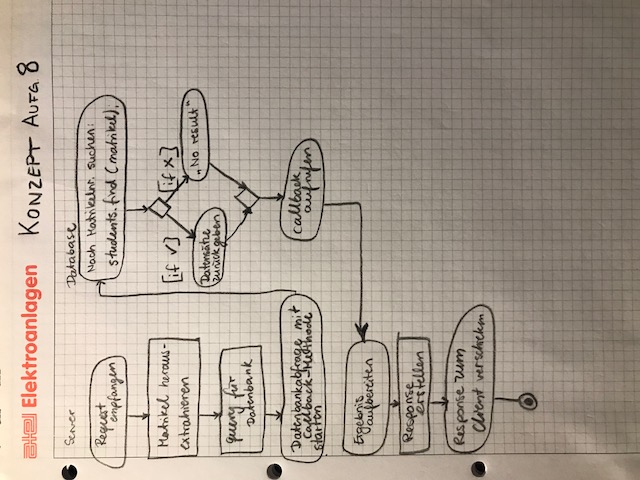 atel Elektroanlagen
KONZEPT AUFG 8
Server
Request
empfangen
Matrikel heraus-
extrahieren
query für
Datenbank
Datenbankabfrage mit
Callback-Methode
starten
Database
Nach Matrikelnr. suchen:
students.find(matrikel);
[if ✓]
[if x]
Datensätze
zurückgeben
„No result"
callback
aufrufen
Ergebnis
aufbereiten
Response
erstellen
Response zum
Client verschicken